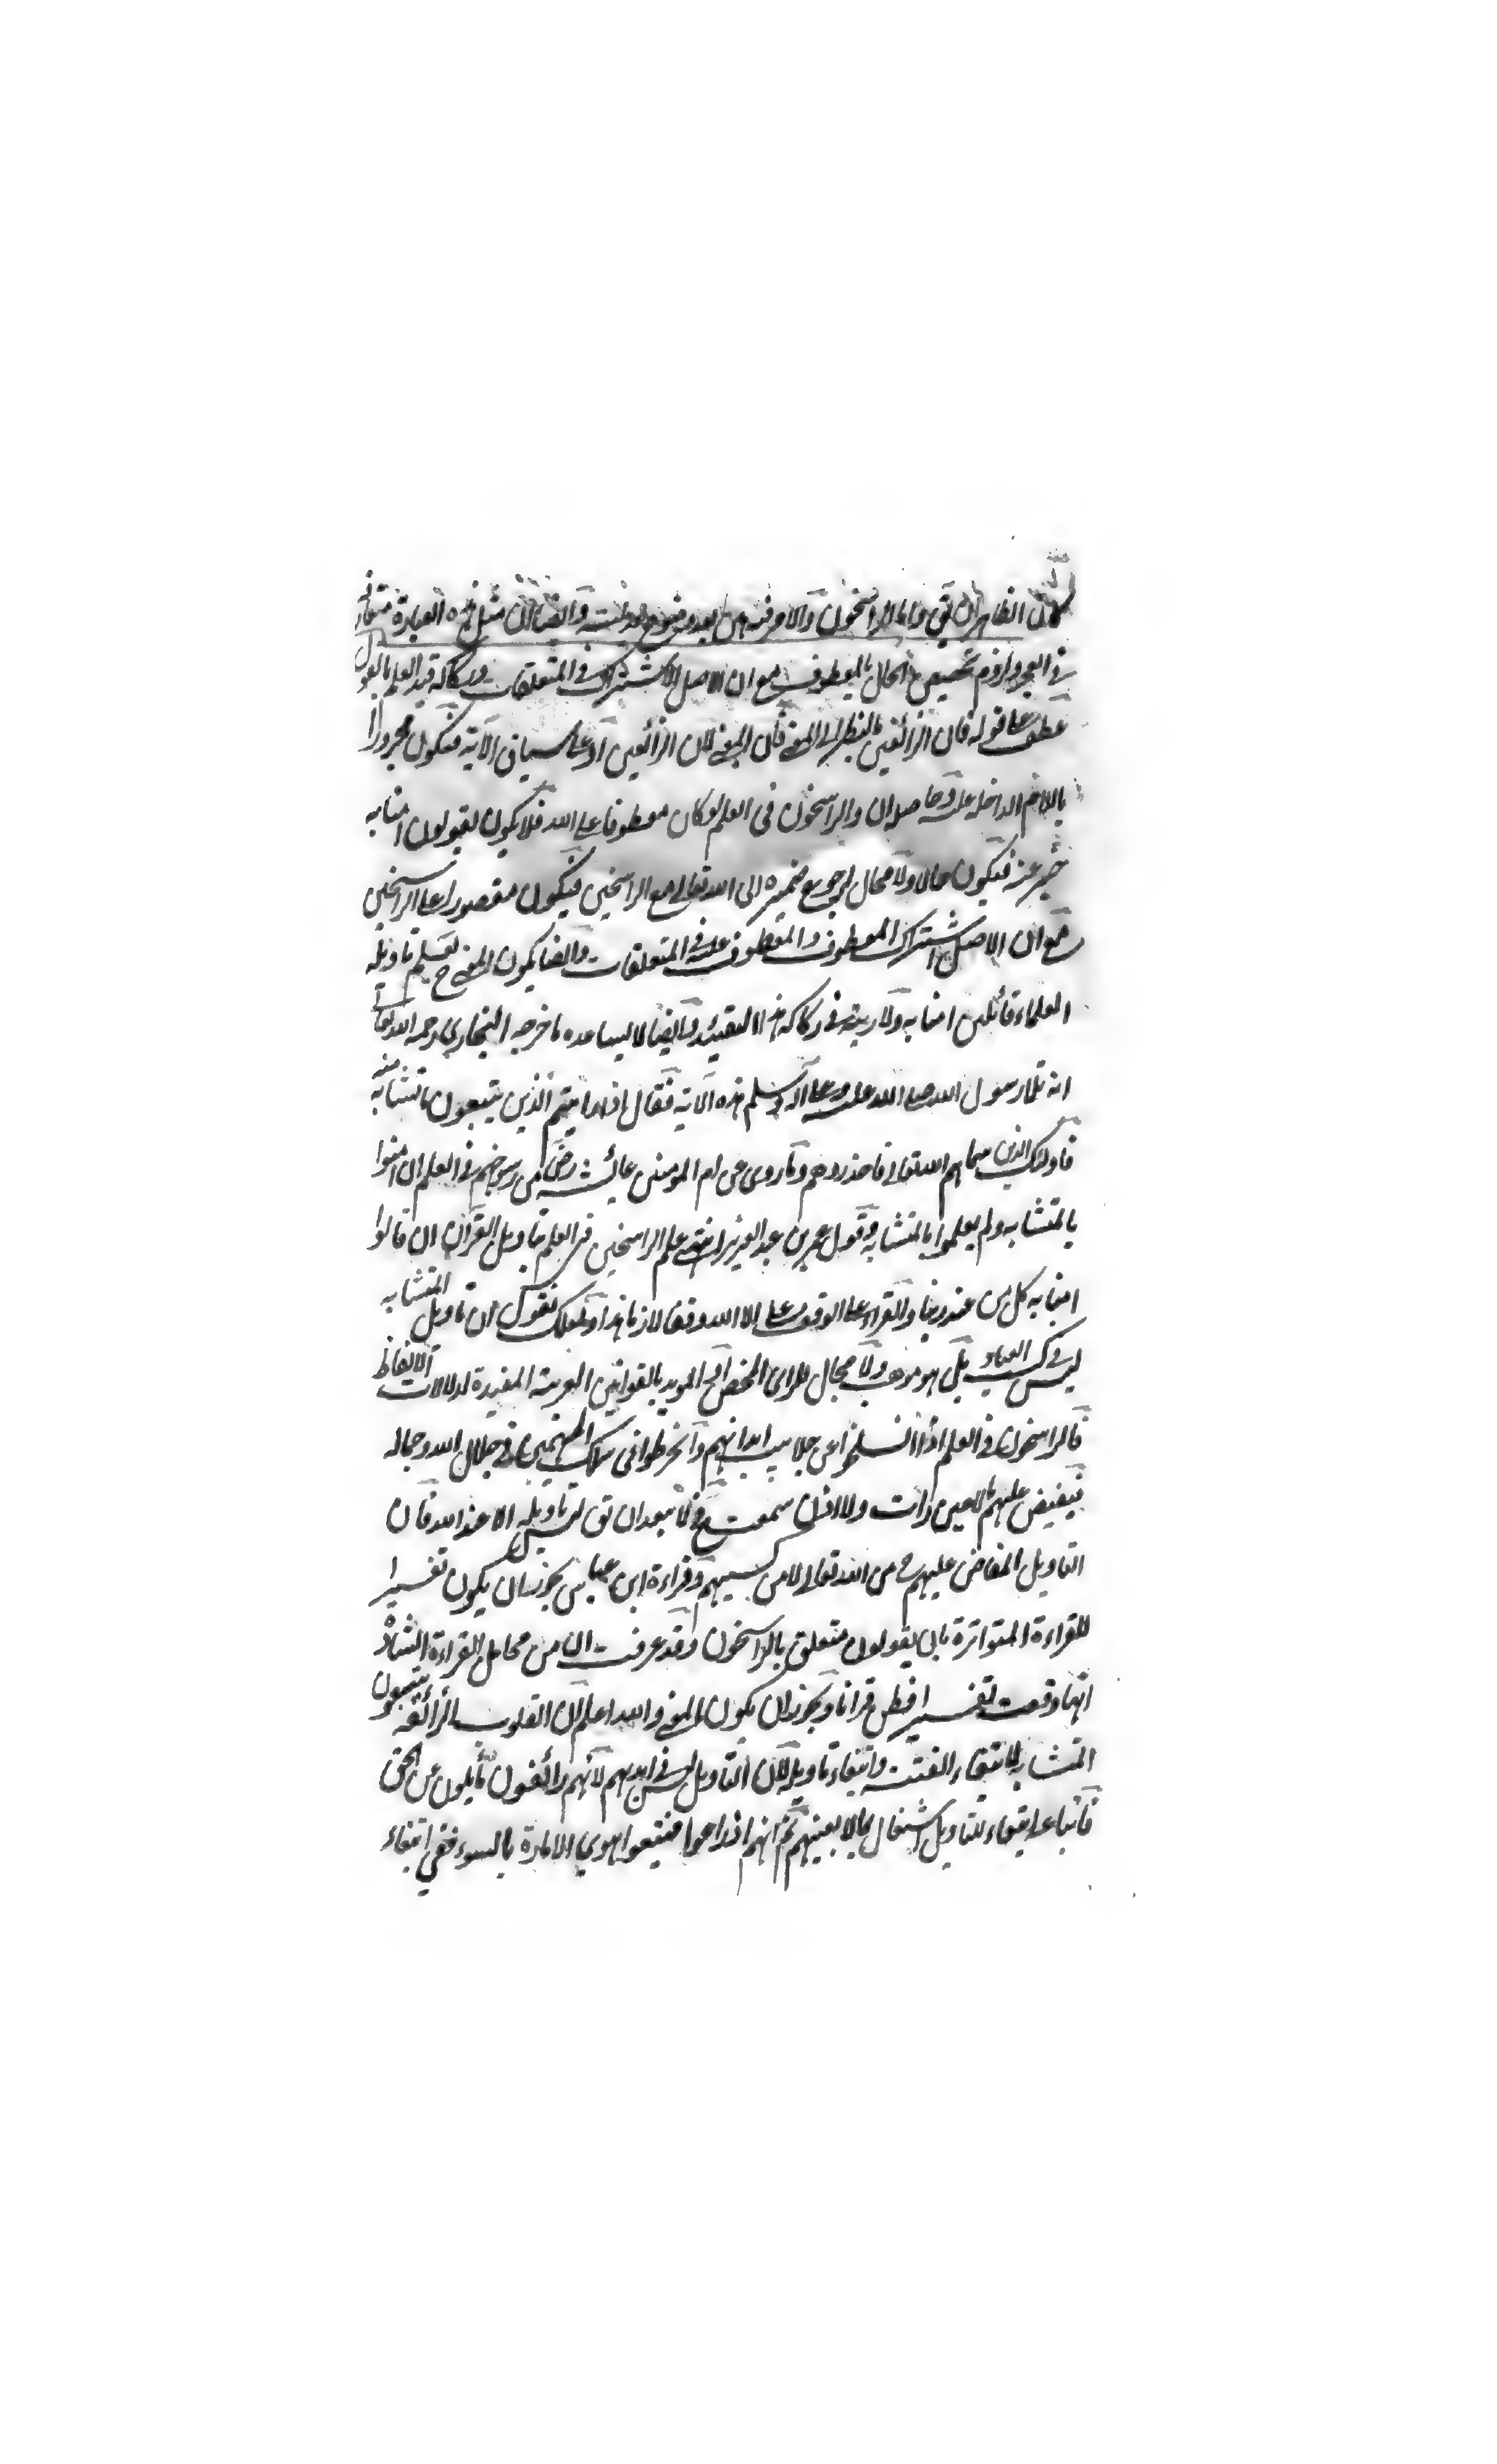 الظاهر ان يقول واما الراسخون والامر فيه هين بعد وضوح وايضا ان مثل هذه العبارة
في العجز ولزوم تخصيص الحال بالمعطوف مع ان الاصل الاشتراك في المتعلقات وركاكة قيد العلم بالقول
عطف على قوله فان الزائغين بالنظر الى المعنى فان المعنى لان الزائغين او على سياق الآية فيكون مجرورا
باللام الداخلة عليه وحاصله ان والراسخون في العلم لو كان معطوفا على الله فلا يكون يقولون امنا به
خبر عنه فيكون حالا ولا مجال لرجوع ضميره الى الله تعالى مع الراسخين فيكون مقصورا على الراسخين
مع ان الاصل اشتراك المعطوف والمعطوف عليه في المتعلقات وايضا يكون المعنى ح يعلم تاويله
العلماء قائلين امنا به ولا ريبة في ركاكة هذا التقييد وايضا لا يساعده ما خرجه البخاري رحمه الله تعالى
انه تلا رسول الله صلى الله عليه وعلى اله وسلم هذه الآية فقال اذا رايتم الذين يتبعون ما تشابه منه
فاولئك الذين سماهم الله تعالى فاحذروهم وما روى عن ام المومنين عائشة رض من رسوخهم في العلم ان امنوا
بالمتشابه ولم يعلموا بالمتشابه وقول عمر بن عبد العزيز انتهى علم الراسخين في العلم بتاويل القرآن ان قالوا
امنا به كل من عند ربنا والقراء على الوقف على الا الله وقفا لازما هذا ولعلك تقول ان تاويل المتشابه
ليس في كسب العباد بل هو موهب ولا مجال للراى المحض او المويد بالقوانين العربية المفيدة لدلالات الالفاظ
فالراسخون في العلم اذا انسلخوا عن جلابيب ابدانهم وانخرطوا في سلك المهيمين في جلال الله وجماله
فيفيض عليهم ما لا عين رات ولا اذن سمعت فلا يبعد ان تق ليس تاويله الا عند الله فان
التاويل المفاض عليهم ح من الله تعالى لا من كسبهم وقراءة ابن عباس يجوز ان يكون تفسيرا
للقراءة المتواترة بان يقولون متعلق بالراسخون وقد عرفت ان من محامل القراءة الشاذة
انها وقعت تفسيرا فظن قرانا ويجوز ان يكون المعنى والله اعلم ان القلوب الزائغة يتبعون
المتشابه لابتغاء الفتنة وابتغاء تاويله لان التاويل ليس في ايديهم لانهم زائغون مايلون عن الحق
فاتباعه ابتغاء للتاويل اشتغال بما لا يعنيهم ثم انهم اذا راموا فيتبعوا هوى الامارة بالسوء ففي ابتغاء